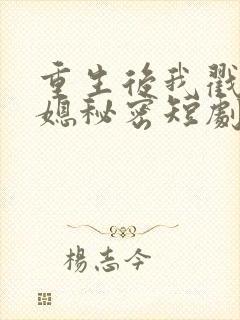 重生后我戳
媳秘密短劇
楊志今